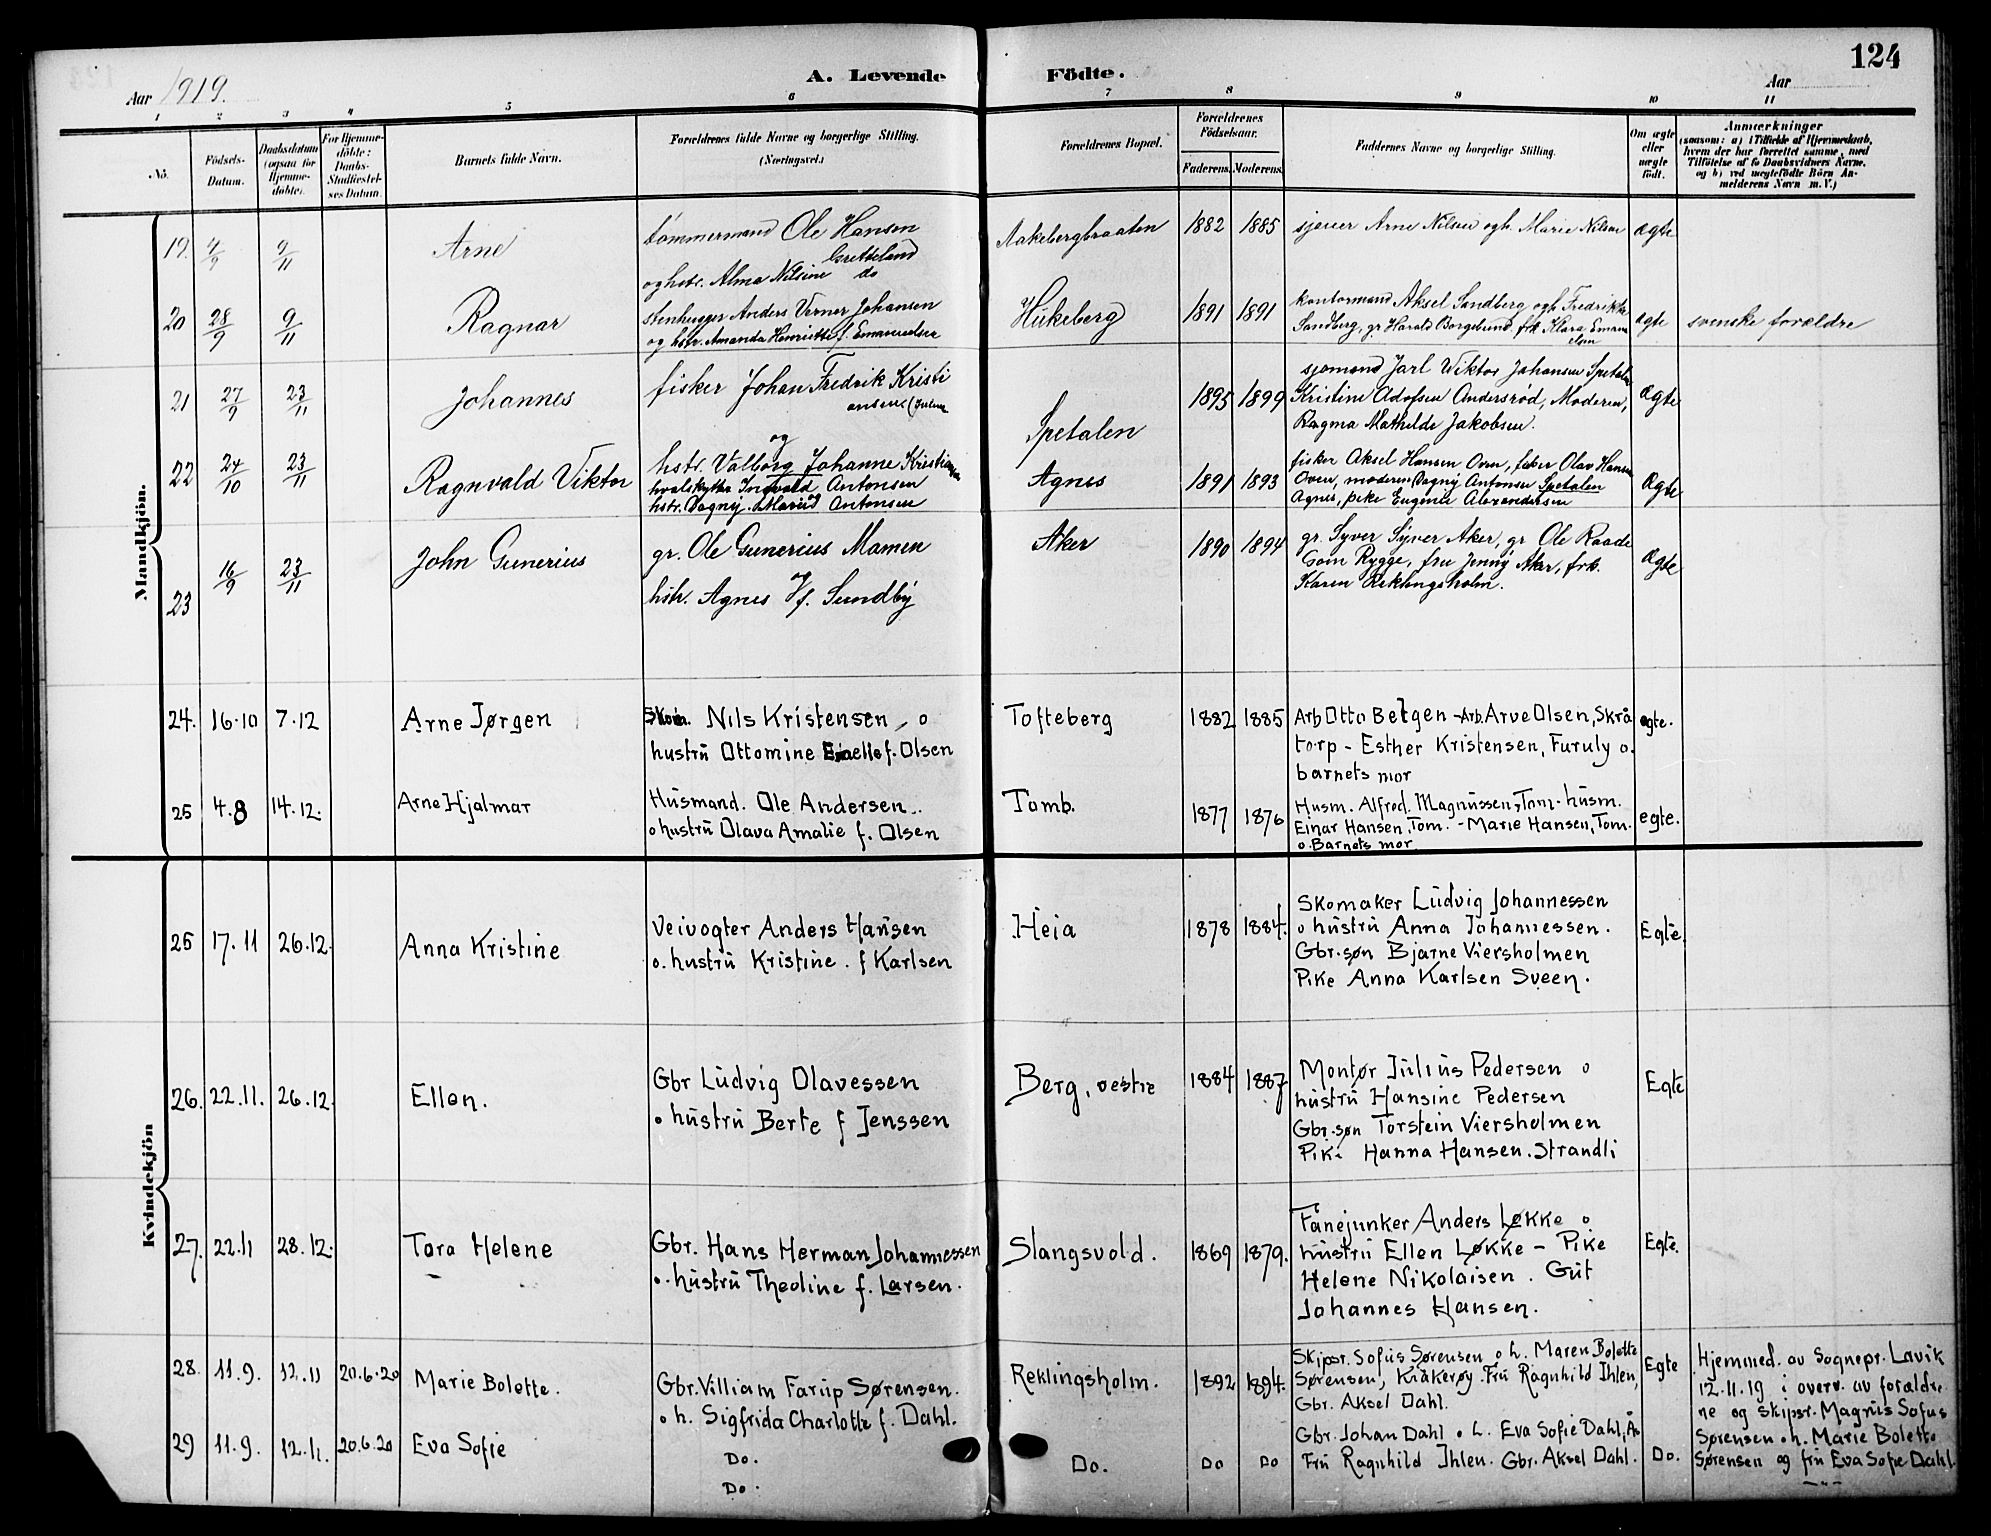 124
Aar 1919.
A. Levende Födte.
Aar
1 2 3 4 5 6 7 8 9 10 11
No.
Födsels-Datum.
Daabsdatum (ogsaa for Hjemme-döbte).
For Hjemme-döbte: Daabs-Stadfæstel-ses Datum.
Barnets fulde Navn.
Forældrenes fulde Navne og borgerlige Stilling. (Næringsvei.)
Forældrenes Bopæl.
Forældrenes Födselsaar.
Faderens. Moderens.
Faddernes Navne og borgerlige Stilling.
Om ægte eller uægte födt.
Anmærkninger
(saasom: a) i Tilfælde af Hjemmedaab, hvem der har forrettet samme, med Tilföielse af to Daabsvidners Navne, og b) ved uægtefödte Börn An-melderens Navn m. V.)
Mandkjön.
19. 4/9 9/11 Arne
tømmermand Ole Hansen
Gretteland
og hstr. Alma Nilsine do
Aakebergbraaten 1882 1885
sjauer Arne Nilsen og h. Marie Nilsen
ægte
20 28/9 9/11 Ragnar
stenhugger Anders Verner Johansen
og hstr. Amanda Henriette f. Emanuelsen
Hukeberg 1891 1891
kontormand Aksel Sandberg og h. Fredrikke
Sandberg, gr. Harald Borgelund frk Klara Emanu
elsen
ægte svenske forældre
21 27/9 23/11 Johannes
fisker Johan Fredrik Kristi
ansen
og
hstr. Valborg Johanne Kristiansen
Spetalen 1895 1899
sjømand Jarl Viktor Johansen Spetalen
Kristine Adofsen Andersrød, Moderen,
Ragna Mathilde Jakobsen.
Ægte
22 24/10 23/11 Ragnvald Viktor
hvalskytter Ingvald Antonsen
hstr. Dagny Antonsen
Agnes 1891 1893
fisker Aksel Hansen Oven, fisker Olav Hansen
Oven, moderen Dagny Antonsen Spetalen
Agnes, pike Eugenie Alexandersen
Ægte
23 16/9 23/11 John Gunerius
gr. Ole Gunerius Mamen
og
hstr. Agnes f. Sundby
Aker 1890 1894
gr. Syver Syver Aker, gr Ole Raade
Tom Rygge, fru Jenny Aker, frk.
Karen Reklingsholm.
Ægte
24. 16.10 7.12 Arne Jørgen
Skom. Nils Kristensen, o
hustru Ottomine f. Olsen
Tofteberg 1882 1885
Arb Otto Betgen - Arb. Arve Olsen, Skrå
torp - Esther Kristensen, Furuly o.
barnets mor
egte.
25 4.8 14.12. Arne Hjalmar
Husmand. Ole Andersen.
o hustru Olava Amalie f. Olsen
Tomb. 1877 1876
Husm. Alfred. Magnussen, Tom - husm.
Einar Hansen, Tom. - Marie Hansen, Tom.
o. Barnets mor
egte.
Kvindekjön
25 17.11 26.12. Anna Kristine
Veivogter Anders Hansen
o. hustru Kristine. f Karlsen
Heia 1878 1884.
Skomaker Ludvig Johannessen
o hustru Anna Johannessen.
Gbr.søn Bjarne Viersholmen
Pike Anna Karlsen Sveen.
Egte.
26. 22.11. 26.12. Ellen.
Gbr Ludvig Olavessen
o hustru Berte f Jenssen
Berg, vestre 1884 1887
Montør Julius Pedersen o
hustru Hansine Pedersen
Gbr.søn Torstein Viersholmen
Pike Hanna Hansen. Strandli
Egte
27. 22.11 28.12. Tora Helene
Gbr. Hans Herman Johannessen
o. hustru Theoline f. Larsen.
Slangsvold. 1869 1879.
Fanejunker Anders Løkke o
hustru Ellen Løkke - Pike
Helene Nikolaisen. Gut
Johannes Hansen.
Egte.
28. 11.9. 12.11 20.6.20 Marie Bolette.
Gbr. Villiam Farup Sørensen.
o h. Sigfrida Charlotte f. Dahl.
Reklingsholm. 1892 1894.
Skipsr. Sofus Sørensen o h. Maren Bolette
Sørensen, Kråkerøy. Fru Ragnhild Ihlen,
Gbr. Aksel Dahl.
Egte
Hjemmed. av Sognepr. Lavik
12.11.19 i overv. av forældre
ne og skipsr. Magnus Sofus
Sørensen o h. Marie Bolette
Sørensen og fru Eva Sofie Dahl.
29 11.9. 12.11. 20.6.20 Eva Sofie
Do.
Do.
Do. Do Do
Gbr. Johan Dahl o h. Eva Sofie Dahl,
Fru Ragnhild Ihlen. Gbr. Aksel Dahl.
Do.
—„—